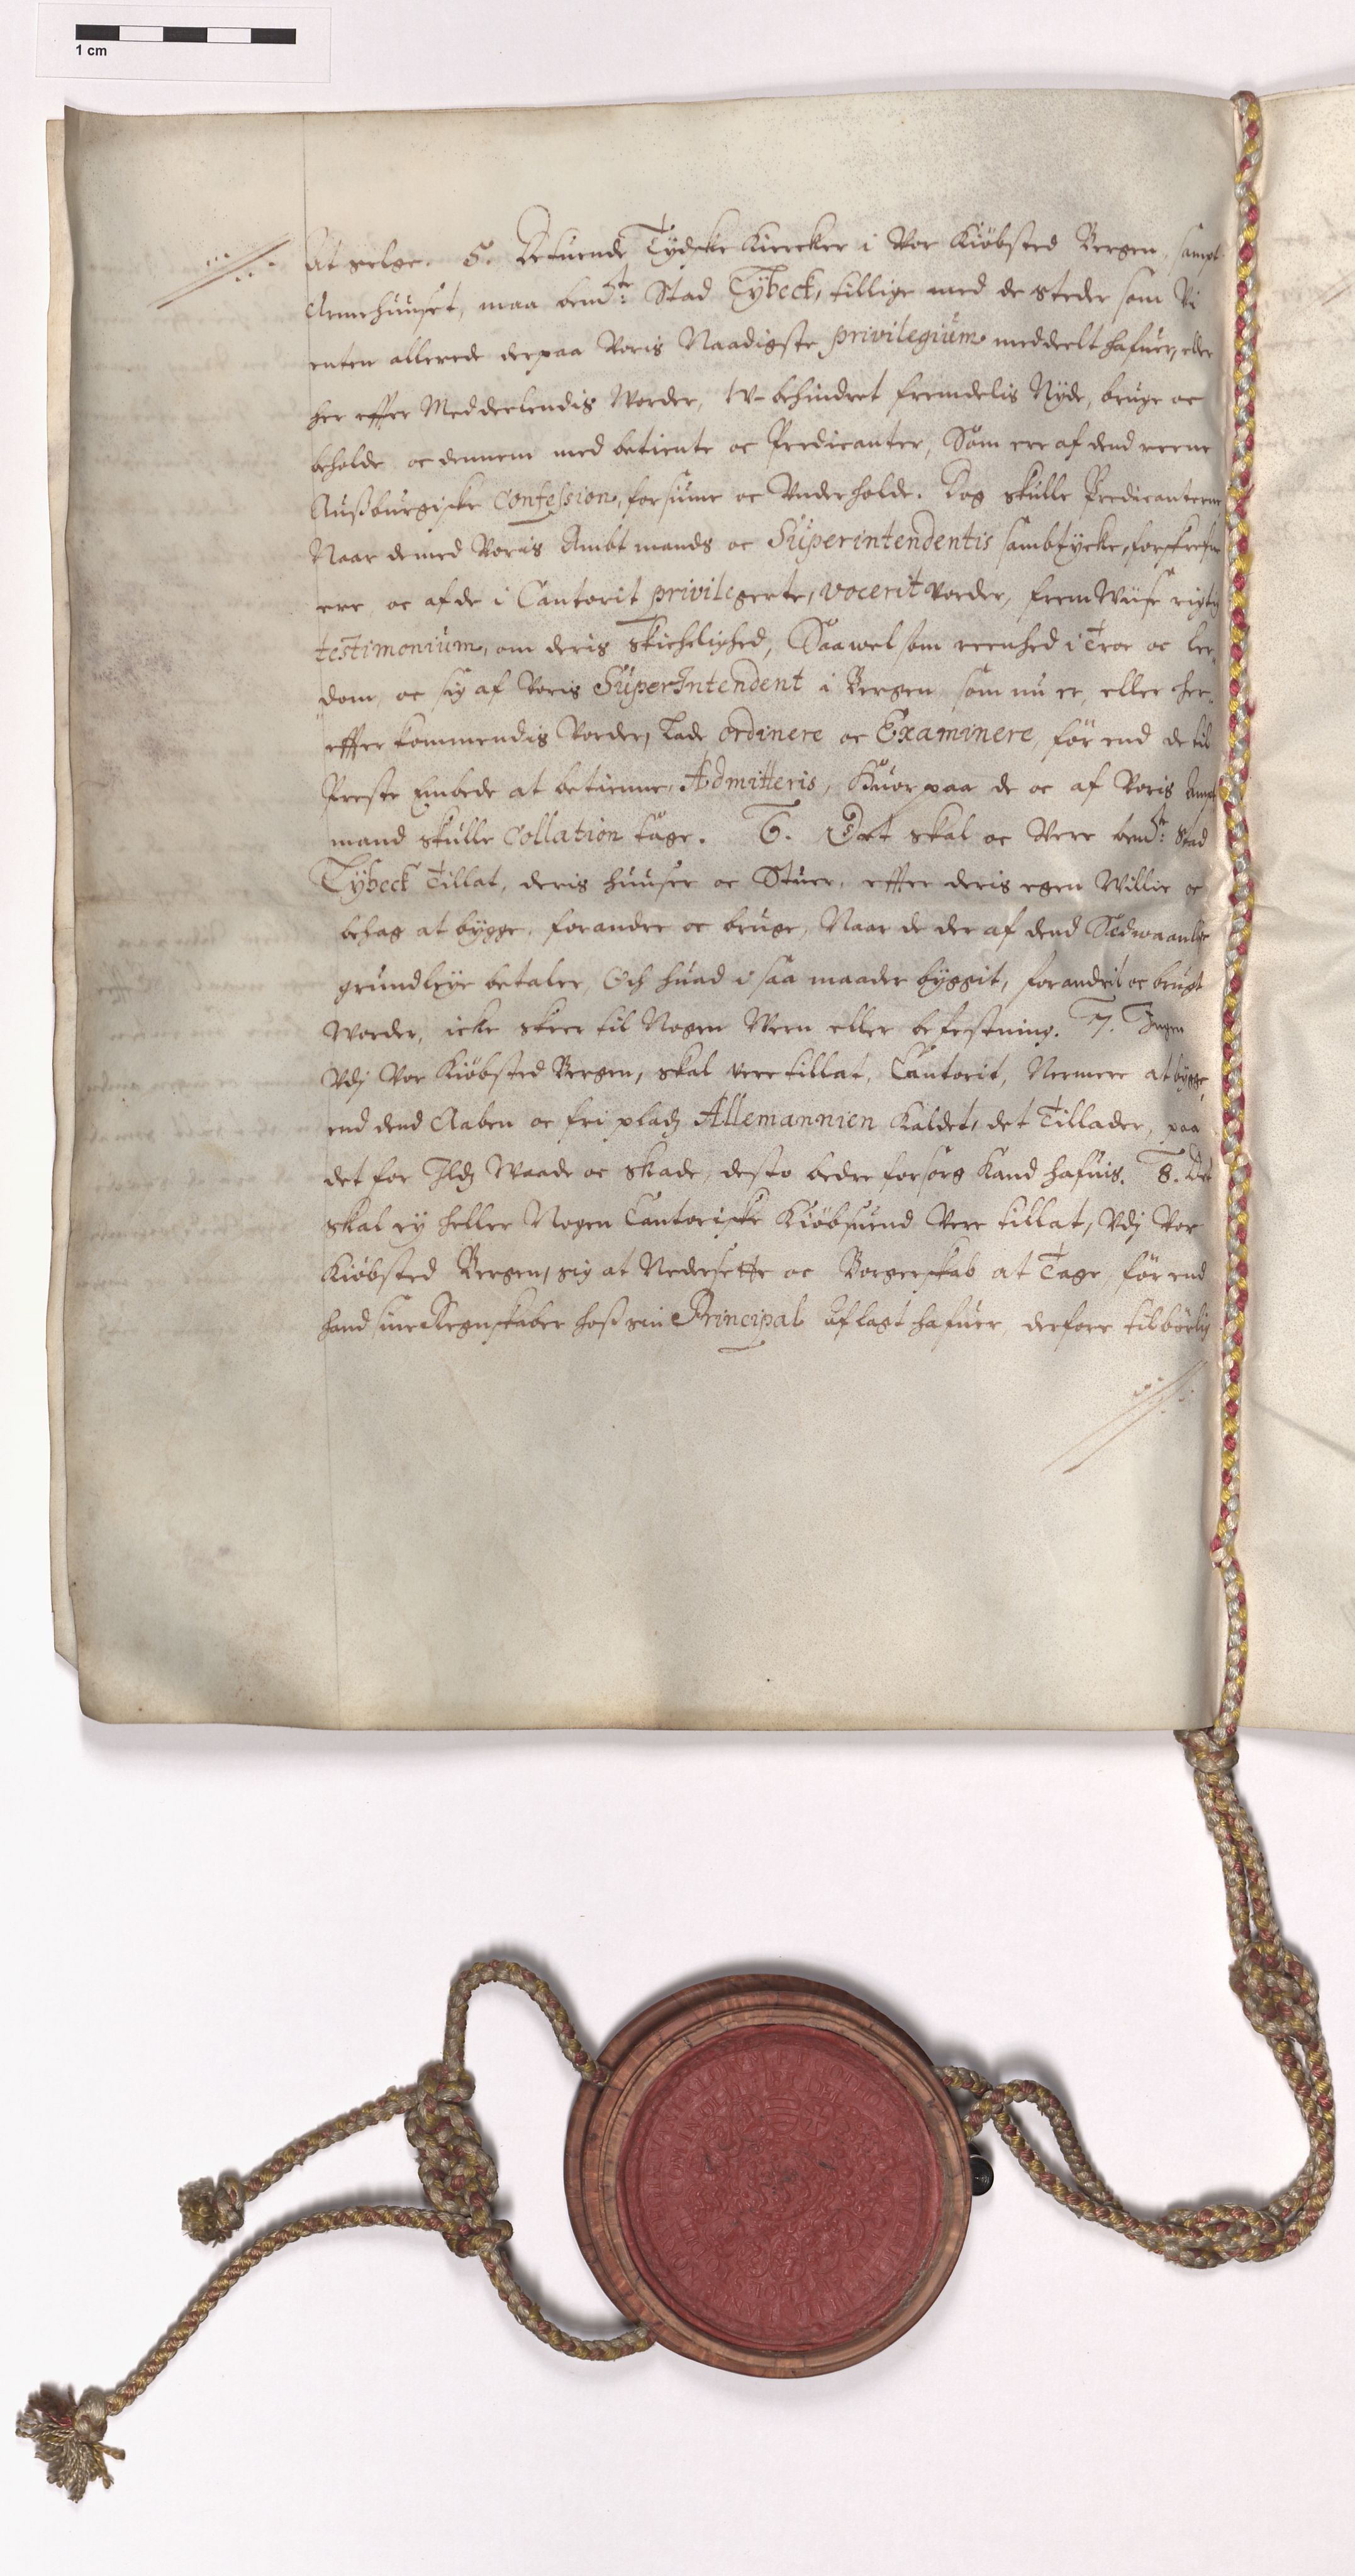 1 cm
At selge. 5. Detuende Tydske Kiercker i Vor Kiöbsted Bergen, sampt
Armehuuset, maa bemte: Stad Lybeck, tillige med de steder som Vi
enten allerede derpaa Voris Naadigste privilegium meddeelt hafuer, eller
her effter Meddeelendis Worder, W-behindret fremdelis Nyde, bruge oc
beholde oc dennem med betiente oc Predicanter, Som ere af dend reene
Außburgiske Confession, forsiune oc Vnderholde. Dog skulle Predicanterne
Naar de med Voris Ambtmands oc Superintendentis sambtycke, forskrefne
ere, oc af de i Cantorit privilegerte, vocerit Vorder, frem Wiise rigtig
testimonium, om deris skichelighed, Saawel som reenhed i Troe oc ler-
dom, oc sig af Voris SuperIntendent i Bergen som nu er, eller her-
effter kommendis Vorder, Lade ordinere oc Examinere, för end de til
Preste Embede at betienne, Admitteris, Huor paa de oc af Voris Ampt
mand skulle Collation tage. 6. Det skal oc Vere bemte: Stad
Lybeck Tillat, deris huuser oc Stuer, effter deris egen Willie oc
behag at bygge, forandre oc bruge, Naar de der af dend Sædwaanlige
grundleye betaler, Och huad i saa maader byggit, forandrit oc brugt
Worder, icke skeer til Nogen Wern eller befestning. 7. Ingen
Vdj Vor Kiöbsted Bergen, skal vere tillat, Cantorit, Nermere at bygge,
end dend Aaben oc fri pladz Allemannien Kaldet, det Tillader, paa
det for Ildz Waade oc skade, desto bedre forsorg Kand hafuis. 8. Det
skal ey heller Nogen Cantoriske Kiöbsuend Vere tillat, Vdj Vor
Kiöbsted Bergen, sig at Nedersette oc Borgerskab at Tage, för end
hand sine Regnskaber hoß sin Principal aflagt hafuer, derfore tilbörlig